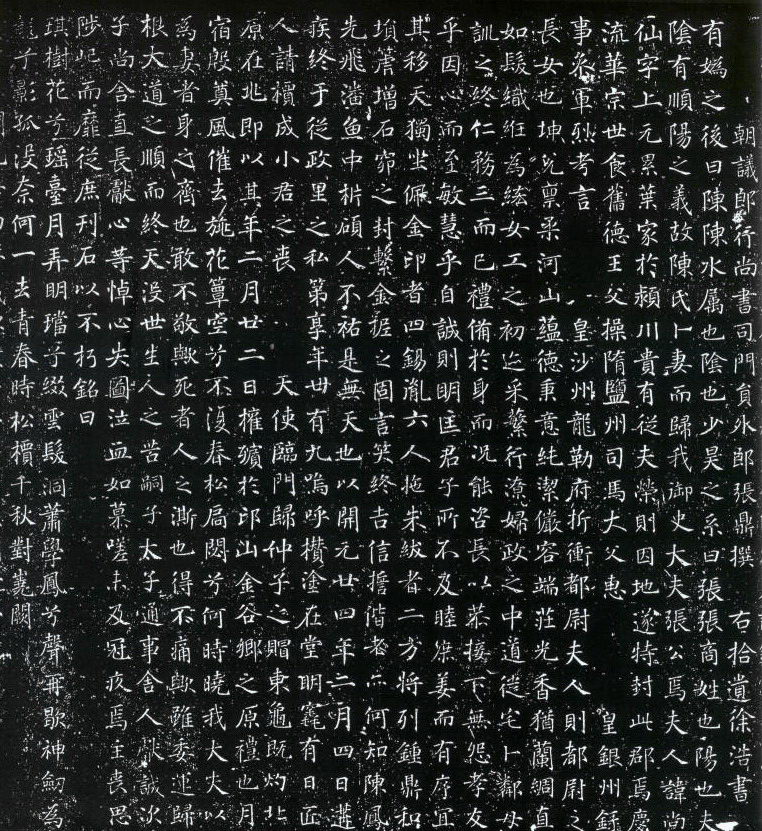 朝議郎行尚書司門員外郎張鼎撰 右拾遺徐浩書
有媯之後曰陳陳水属也陰也少昊之系曰張張商姓也陽也夫
陰有順陽之義故陳氏卜妻而歸我御史大夫張公焉夫人諱尚
仙字上元累葉家於潁川貴有從夫榮則因地遂特封此郡焉慶
流華宗世食舊德王父操隋鹽州司馬大父惠 皇銀州録
事叅軍烈考言 皇沙州龍勒府折衝都尉夫人則都尉之
長女也坤允稟柔河山蘊德秉意純潔儼容端莊光香猶蘭綢直
如髮織絍為絃女工之初迄采蘩行潦婦政之中道從宅卜鄰母
訓之終仁務三而已禮俻於身而況能咨長以恭接下無怨孝友
乎因心而至敏慧乎自誠則明匡君子所不及睦娣姜而有序宜
其移天獨坐佩金印者四錫胤六人拖朱紱者二方將列鍾鼎和
塤箎增石窌之封繫金柅之固言笑終吉信擔偕老亦何知陳鳳
先飛潘魚中析碩人不祐是無天也以開元廿四年二月四日遘
疾終于從政里之私第享年卌有九嗚呼攢塗在堂明竁有日匠
人請櫝成小君之喪 天使臨門歸仲子之賵東龜既灼北
原在兆即以其年二月廿二日擁殯於邙山金谷鄉之原禮也月
宿殷奠風催去旐花簟空兮不復春松扃閟兮何時曉我大夫以
為妻者身之齊也敢不敬歟死者人之澌也得不痛歟雖委運歸
根大道之順而終天没世生人之苦嗣子太子通事舍人獻誠次
子尚舍直長獻心等悼心失圖泣血如慕嗟未及冠疚焉主喪思
陟屺而靡從庶刊石以不朽銘曰
琪樹花兮瑶臺月弄明璫兮綴雲髮洞蕭學鳳兮聲再歇神劒為
龍兮影孤没奈何一去青春時松檟千秋對嵩闕